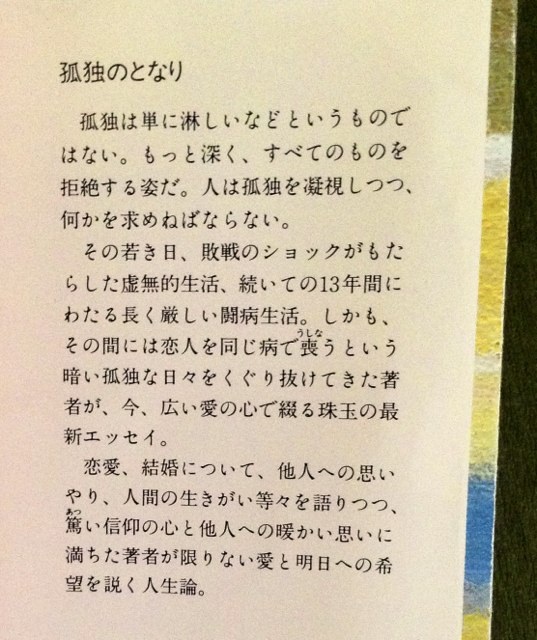 孤独のとなり
孤独は単に淋しいなどというもので
はない。もっと深く、すべてのものを
拒絶する姿だ。人は孤独を凝視しつつ、
何かを求めねばならない。
その若き日、敗戦のショックがもた
らした虚無的生活、続いての13年間に
わたる長く厳しい闘病生活。しかも、
その間には恋人を同じ病で喪うという
うしな
暗い孤独な日々をくぐり抜けてきた著
者が、今、広い愛の心で綴る珠玉の最
新エッセイ。
恋愛、結婚について、他人への思い
やり、人間の生きがい等々を語りつつ、
篤い信仰の心と他人への暖かい思いに
あつ
満ちた著者が限りない愛と明日への希
望を説く人生論。